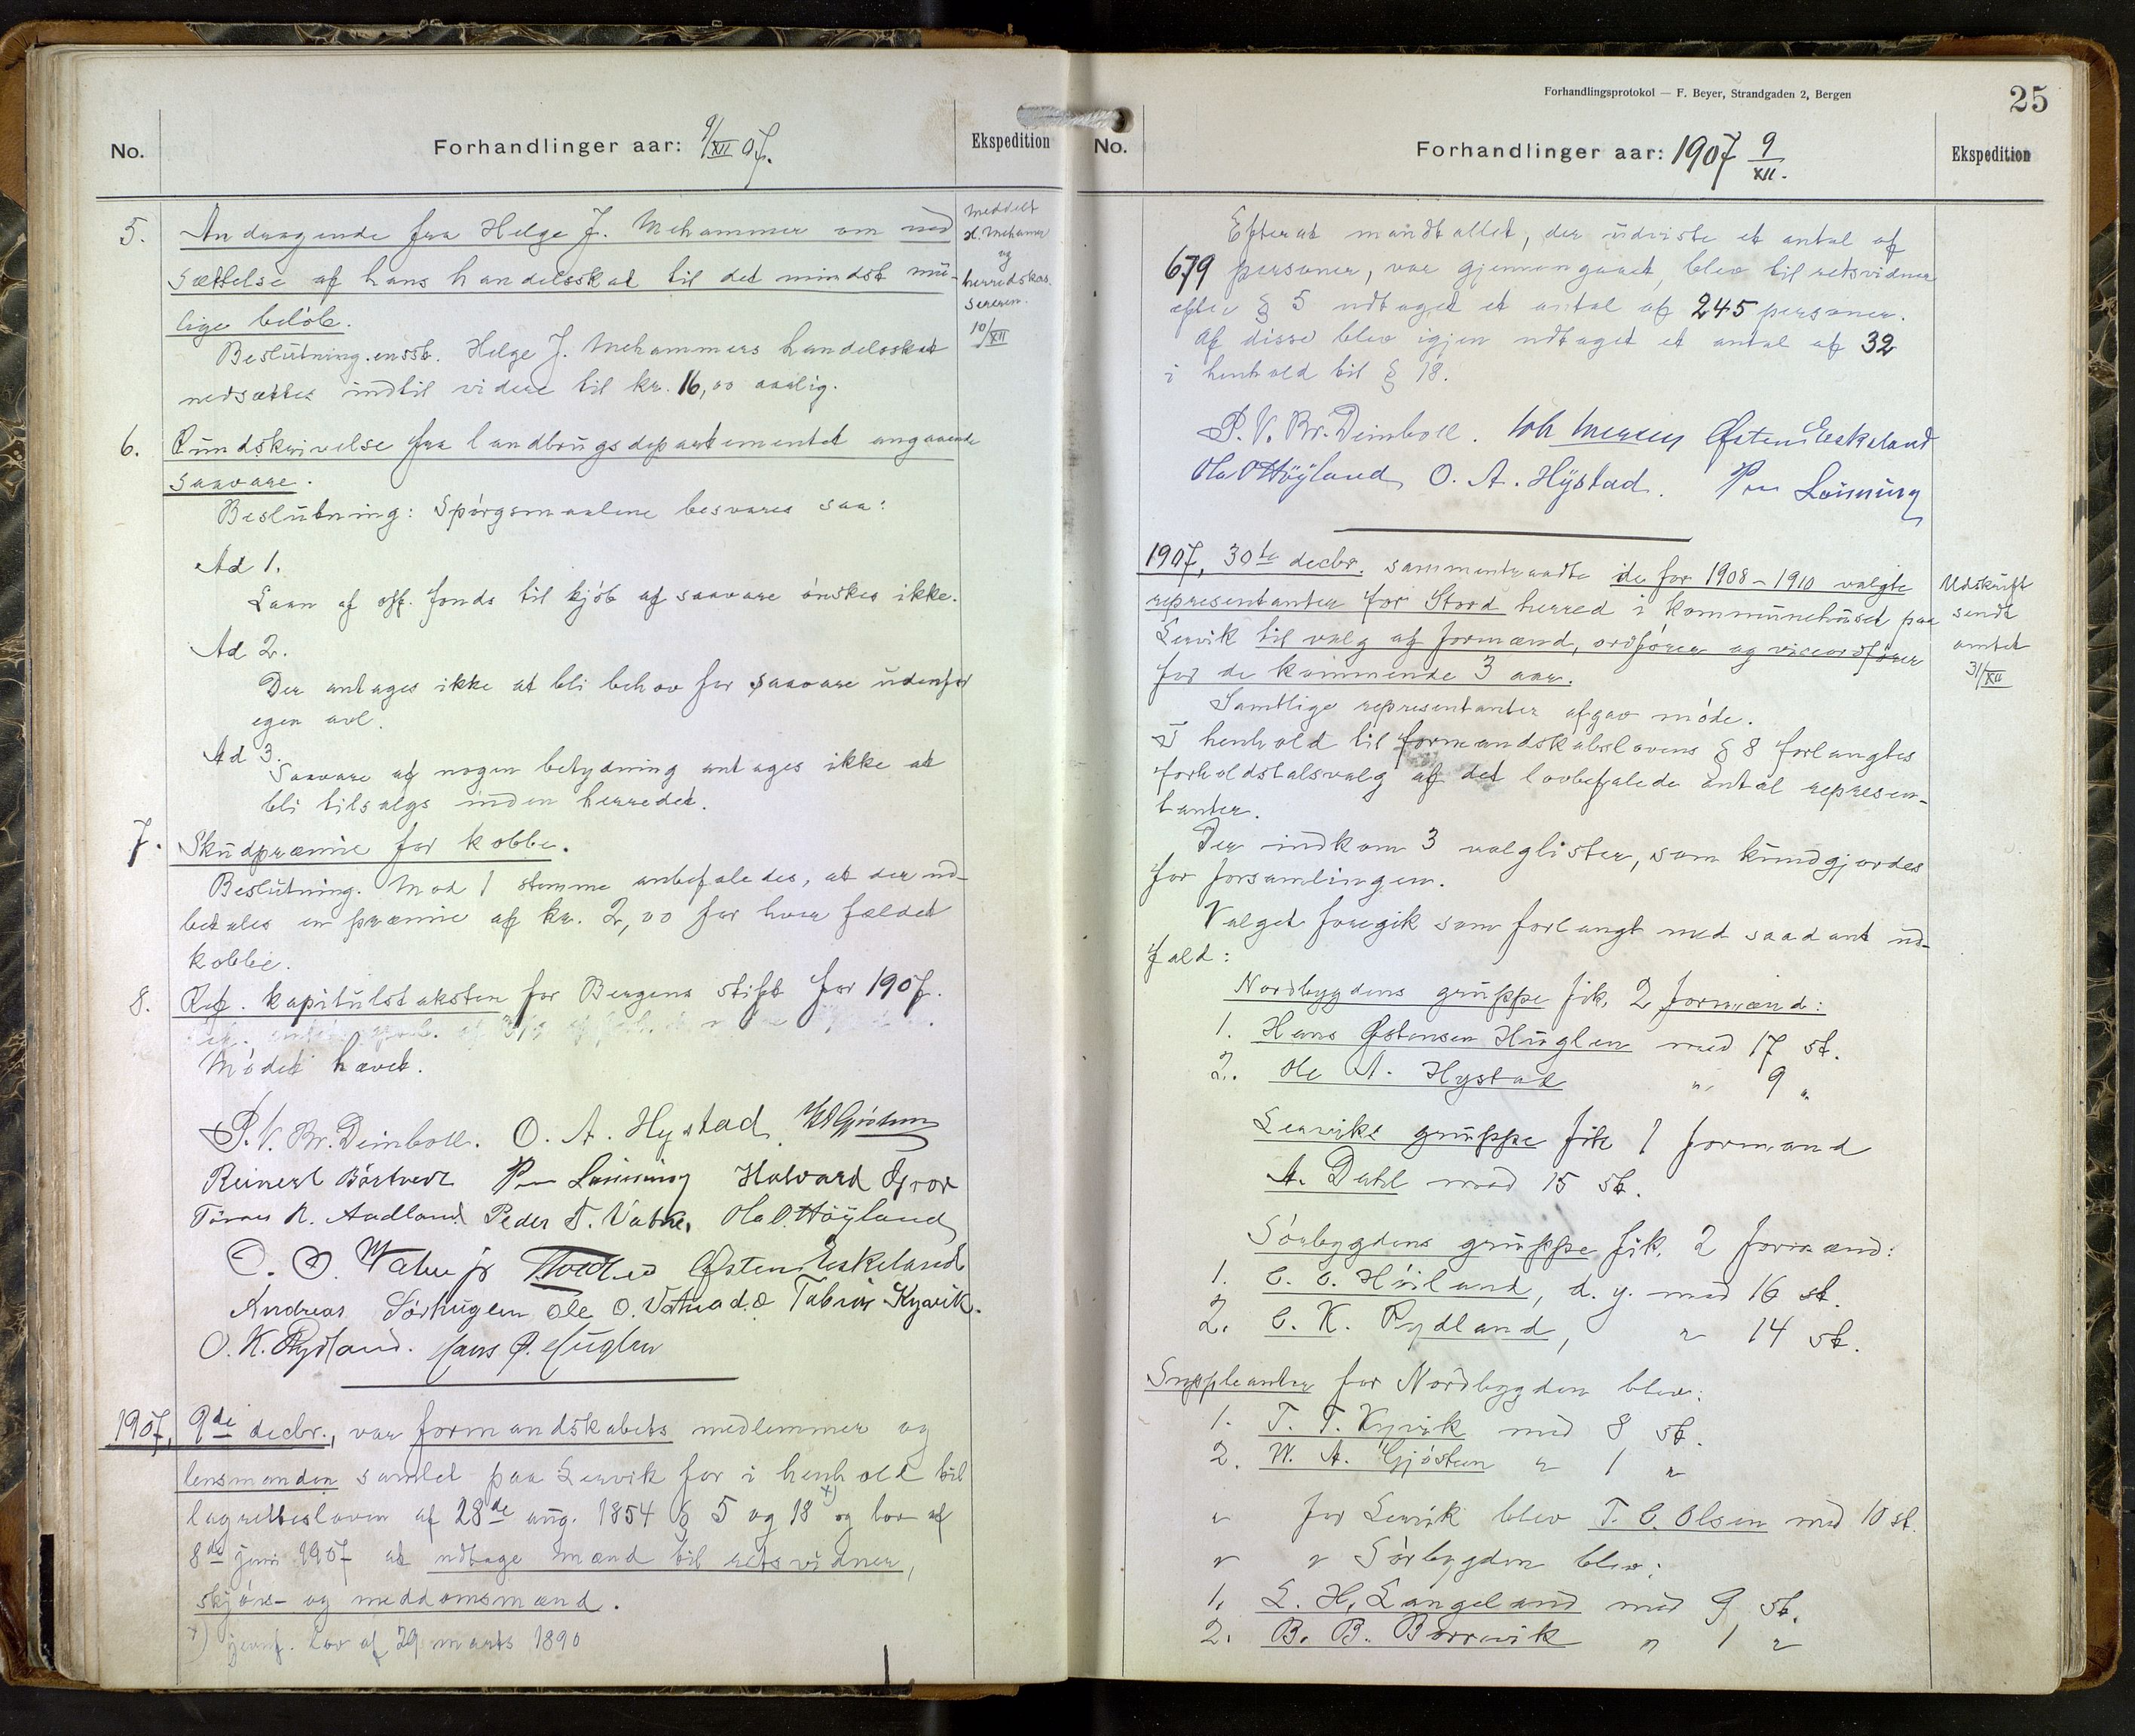 No.
Forhandlinger aar: 9/XII 07.
Ekspedition
5. Andragende fra Helge J. Mehammer om ned
sættelse af hans handelsskat til det mindst mu-
lige beløb.
Beslutning. enst. Helge J. Mehammers handelsskat
nedsættes indtil videre til kr. 16,00 aarlig.
Meddelt
H. Mehamer
og
herredskas
sereren.
10/XII
6. Rundskrivelse fra landbrugsdepartementet angaaende
saavare.
Beslutning: Spørgsmaalene besvares saa:
Ad 1.
Laan af off. fonds til kjøb af saavare ønskes ikke.
Ad 2.
Der antages ikke at bli behov for saavare udenfor
egen avl.
Ad 3.
Saavare af nogen betydning antages ikke at
bli tilsalgs inden herredet.
7. Skudpræmie for kobbe.
Beslutning. Mod 1 stemme anbefaledes, at der ud-
betales en præmie af kr. 2,00 for hver fældet
kobbe.
8. Ref. kapitulstaksten for Bergens stift for 1907.
Mødet hævet.
P. V. Br. Deinboll. O. A. Hystad.
Reinert Børtvedt Per Lønning Halvard
Tørres N. Aadland Peder T. Vatne, Ola O. Høyland
O. O. Vatne jr Østen Eskeland
Andreas Sørhuglen Ole O. Vatna d.æ Tobias Kyvik.
O. K. Rydland. Hans Ø. Huglen
1907, 9de decbr., var formandskabets medlemmer og
lensmanden samlet paa Lervik for i henhold til
lagrettesloven af 28de aug. 1854 § 5 og 18 x) og lov af
8de juni 1907 at udtage mænd til retsvidner,
skjøns- og meddomsmænd.
x) jevnf. Lov af 29 marts 1890
Forhandlingsprotokol — F. Beyer, Strandgaden 2, Bergen
25
No.
Forhandlinger aar: 1907 9/XII.
Ekspedition
Efterat mandtallet, der udviste et antal af
679 personer, var gjennemgaaet, blev til retsvidner
efter § 5 udtaget et antal af 245 personer.
Af disse blev igjen udtaget et antal af 32
i henhold til § 18.
P. V. Br. Deinboll. Østen Eskeland
Ola O Høyland, O. A. Hystad. Per Lønning
1907, 30te decbr. sammentraadte de for 1908-1910 valgte
representanter for Stord herred i kommunehuset paa
Lervik til valg af formænd, ordfører og viceordfører
for de kommende 3 aar.
Udskrift
sendt
amtet
31/XII
Samtlige representanter afgav møde.
I henhold til formandskabslovens § 8 forlangtes
forholdstalsvalg af det lovbefalede antal represen-
tanter.
Der indkom 3 valglister, som kundgjordes
for forsamlingen.
Valget foregik som forlangt med saadant ud-
fald:
Nordbygdens gruppe fik 2 formænd:
1. Hans Østensen Huglen med 17 st.
2. Ole A. Hystad " 9 "
Lerviks gruppe fik 1 formand
A. Dahl med 15 st.
Sørbygdens gruppe fik 2 formænd:
1. O. O. Høiland, d. y. med 16 st.
2. O. K. Rydland, " 14 st.
Suppleanter for Nordbygden blev:
1. T. T. Kyvik med 8 st.
2. W. A. Gjøsteen " 1 "
" for Lervik blev T. O. Olsen med 10 st.
" " Sørbygden blev:
1. L. H. Langeland med 9 st.
2. B. B. Borrevik " 1 "